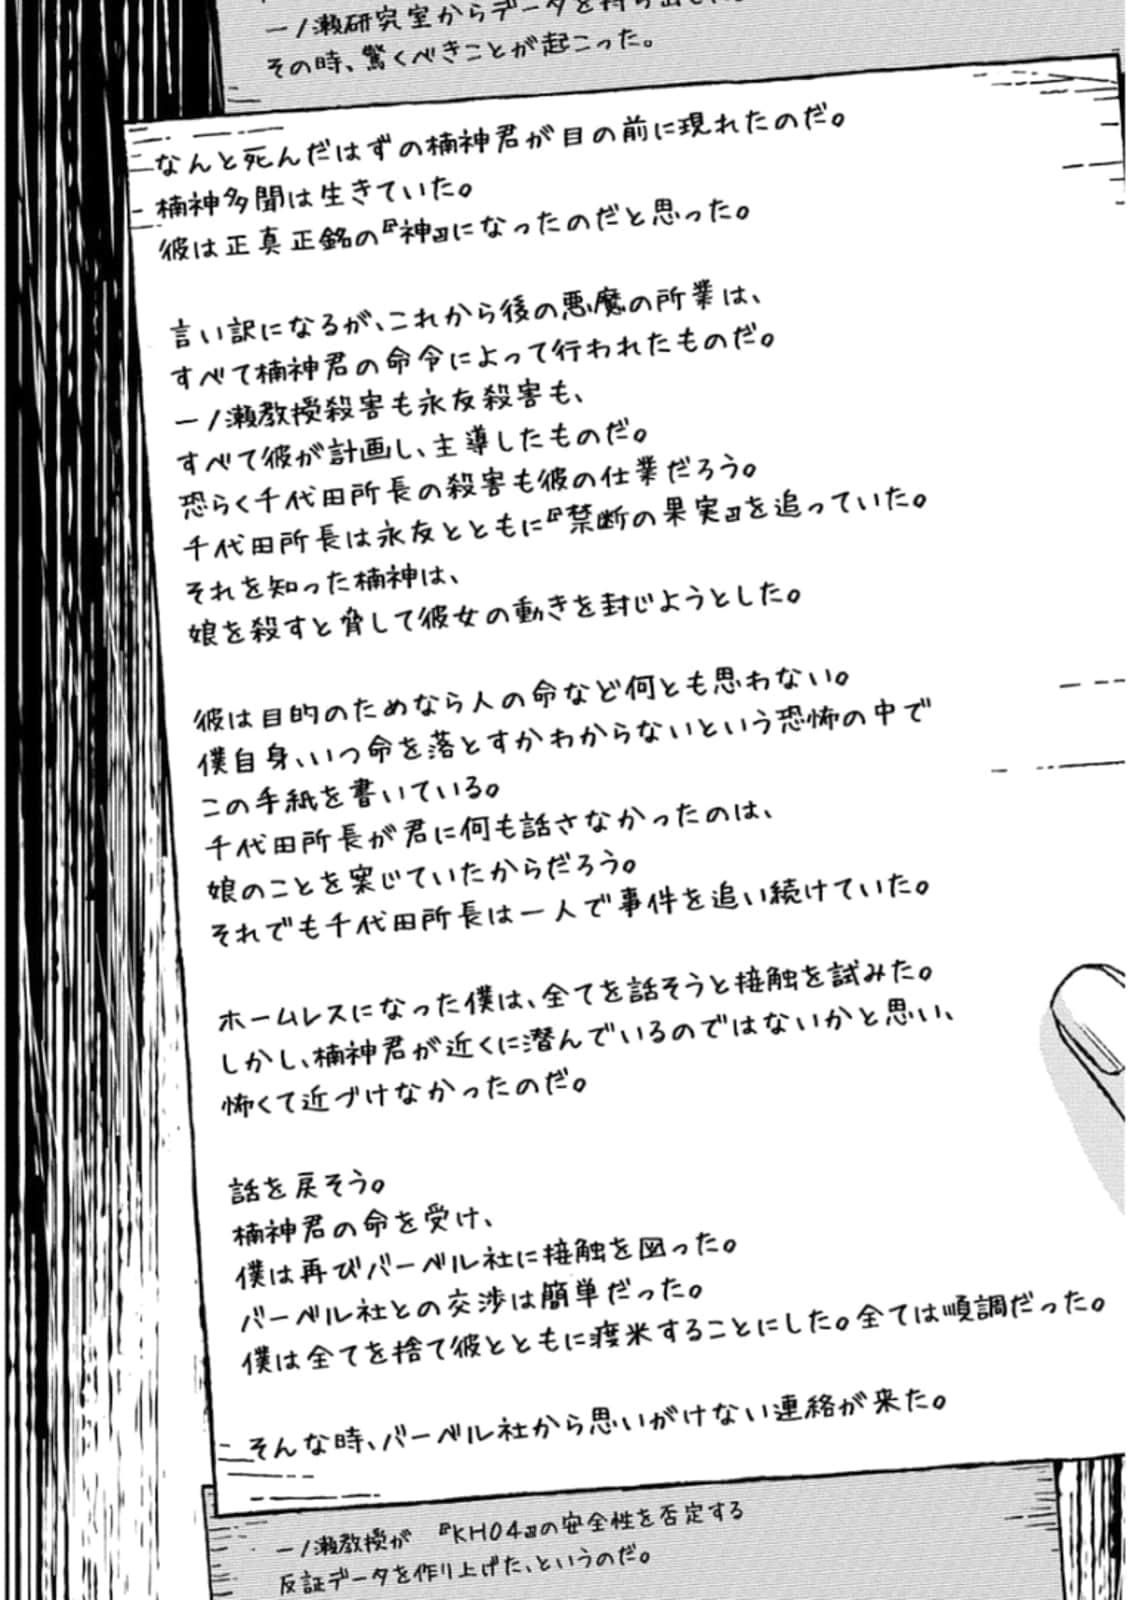 一ノ瀬研究室からデータを持ち出し
その時、驚くべきことが起こった。
なんと死んだはずの楠神君が目の前に現れたのだ。
楠神多聞は生きていた。
彼は正真正銘の『神』になったのだと思った。
言い訳になるが、これから後の悪魔の所業は、
すべて楠神君の命令によって行われたものだ。
一ノ瀬教授殺害も永友殺害も、
すべて彼が計画し、主導したものだ。
恐らく千代田所長の殺害も彼の仕業だろう。
千代田所長は永友とともに『禁断の果実』を追っていた。
それを知った楠神は、
娘を殺すと脅して彼女の動きを封じようとした。
彼は目的のためなら人の命など何とも思わない。
僕自身、いつ命を落とすかわからないという恐怖の中で
この手紙を書いている。
千代田所長が君に何も話さなかったのは、
娘のことを案じていたからだろう。
それでも千代田所長は一人で事件を追い続けていた。
ホームレスになった僕は、全てを話そうと接触を試みた。
しかし、楠神君が近くに潜んでいるのではないかと思い、
怖くて近づけなかったのだ。
話を戻そう。
楠神君の命を受け、
僕は再びバーベル社に接触を図った。
バーベル社との交渉は簡単だった。
僕は全てを捨て彼とともに渡米することにした。全ては順調だった。
そんな時、バーベル社から思いがけない連絡が来た。
一ノ瀬教授が『KH04』の安全性を否定する
反証データを作り上げた、というのだ。